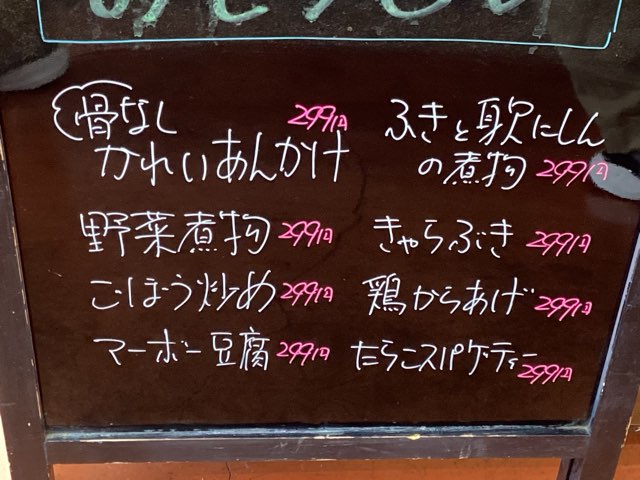 骨なし 299円
かれいあんかけ
野菜煮物 299円
ごぼう炒め 299円
マーボー豆腐 299円
ふきと身欠にしん
の煮物 299円
きゃらぶき 299円
鶏からあげ 299円
たらこスパゲティー
299円